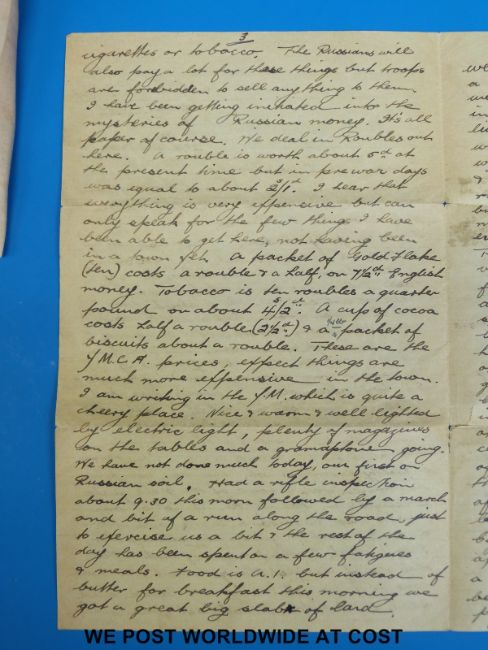 3
cigarettes or tobacco. The Russians will
also pay a lot for these things but troops
are forbidden to sell anything to them.
I have been getting initiated into the
mysteries of Russian money. It's all
paper of course. We deal in Roubles out
here. A rouble is worth about 5d at
the present time but in prewar days
was equal to about 2/1d. I hear that
everything is very expensive but can
only speak for the few things I have
been able to get here, not having been
in a town yet. A packet of Gold Flake
(ten) costs a rouble & a half, or 7½d English
money. Tobacco is ten roubles a quarter
pound or about 4/2d. A cup of cocoa
costs half a rouble (2½d) & a packet of
biscuits about a rouble. These are the
Y.M.C.A. prices, expect things are
much more expensive in the town.
I am writing in the Y.M. which is quite a
cheery place. Nice & warm & well lighted
by electric light, plenty of magazines
on the tables and a gramaphone going.
We have not done much today, our first on
Russian soil. Had a rifle inspection
about 9.30 this morn followed by a march
and bit of a run along the road, just
to exercise us a bit & the rest of the
day has been spent on a few fatigues
& meals. Food is A.1. but instead of
butter for breakfast this morning we
got a great big slab of lard
WE POST WORLDWIDE AT COST